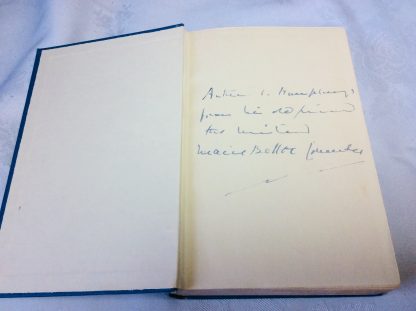 Arthur L. Humphreys
from his old friend
the writer
Marie Belloc Lowndes